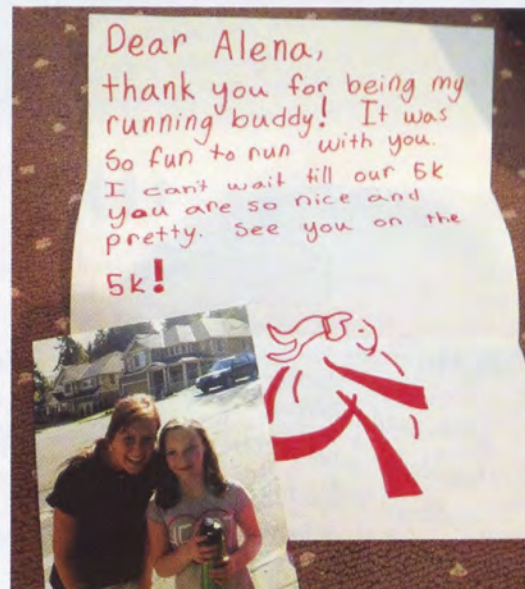 Dear Alena,
thank you for being my
running buddy! It was
So fun to run with you.
I can't wait till our 5k
you are so nice and
pretty. See you on the
5k!